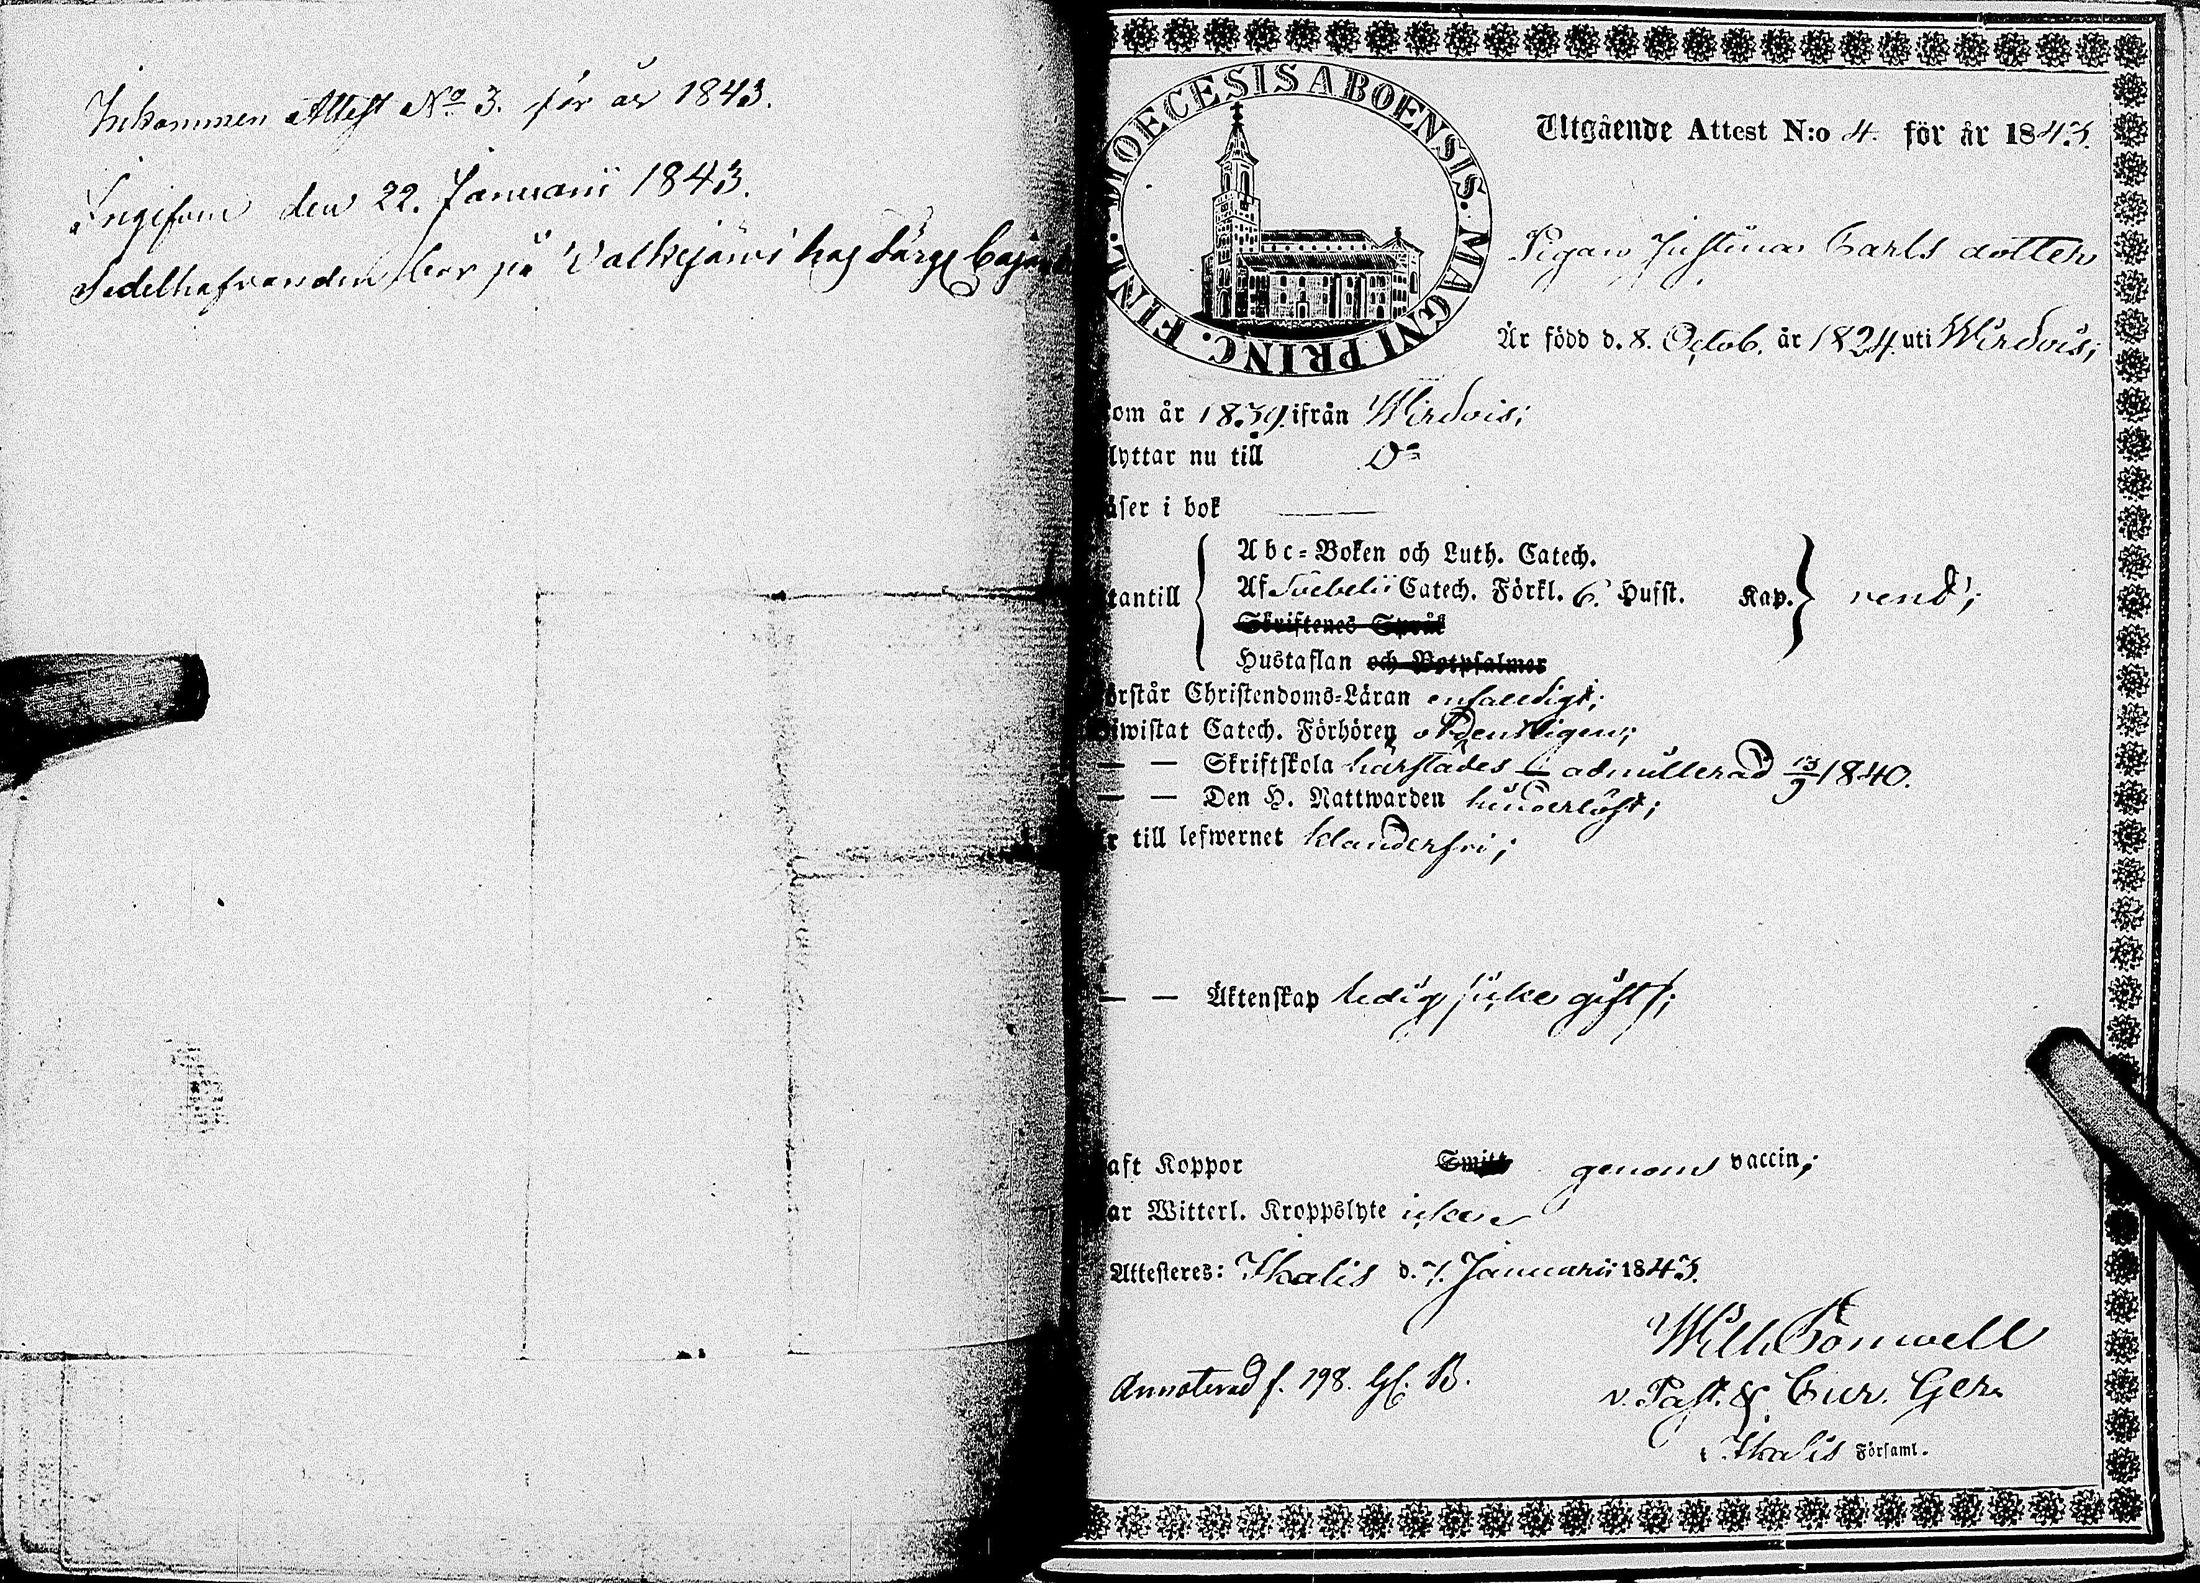 Inkommen Attest No 3. för år 1843.
Ingifven den 22. Januarii 1843.
Sedelhafvanden bor på Valkejärvi hos
DIOECESIS ABOENSIS. MAGNI PRINC. FINL.
Utgående Attest N:o 4. för år 1843.
Pigan Justina Carls dotter
Är född d. 8. Octob. år 1824. uti Wirdois;
om år 1839. ifrån Wirdois;
lyttar nu till Do
äser i bok
Abc-Boken och Luth. Catech.
tantill Af Svebelii Catech. Förkl. 6. Hufst. Kap. rend;
Skriftenes Språk
Hustaflan och Botpsalmer
örstår Christendoms-Läran enfaldigt;
iwistat Catech. Förhören ordentligen;
— — Skriftskola härstädes admitterad 13/9 1840.
— — Den H. Nattwarden hinderlöst;
r till lefwernet klanderfri;
— — Äktenskap ledig, icke gift;
aft Koppor Smitt genom vaccin;
ar Witterl. Kroppslyte icke
Attesteres: Ikalis d. 7. Januarii 1843.
Wilh. Pönwell
v. Past. & Cur. Ger.
i Ikalis Församl.
Annoterad f. 198. Gl. B.